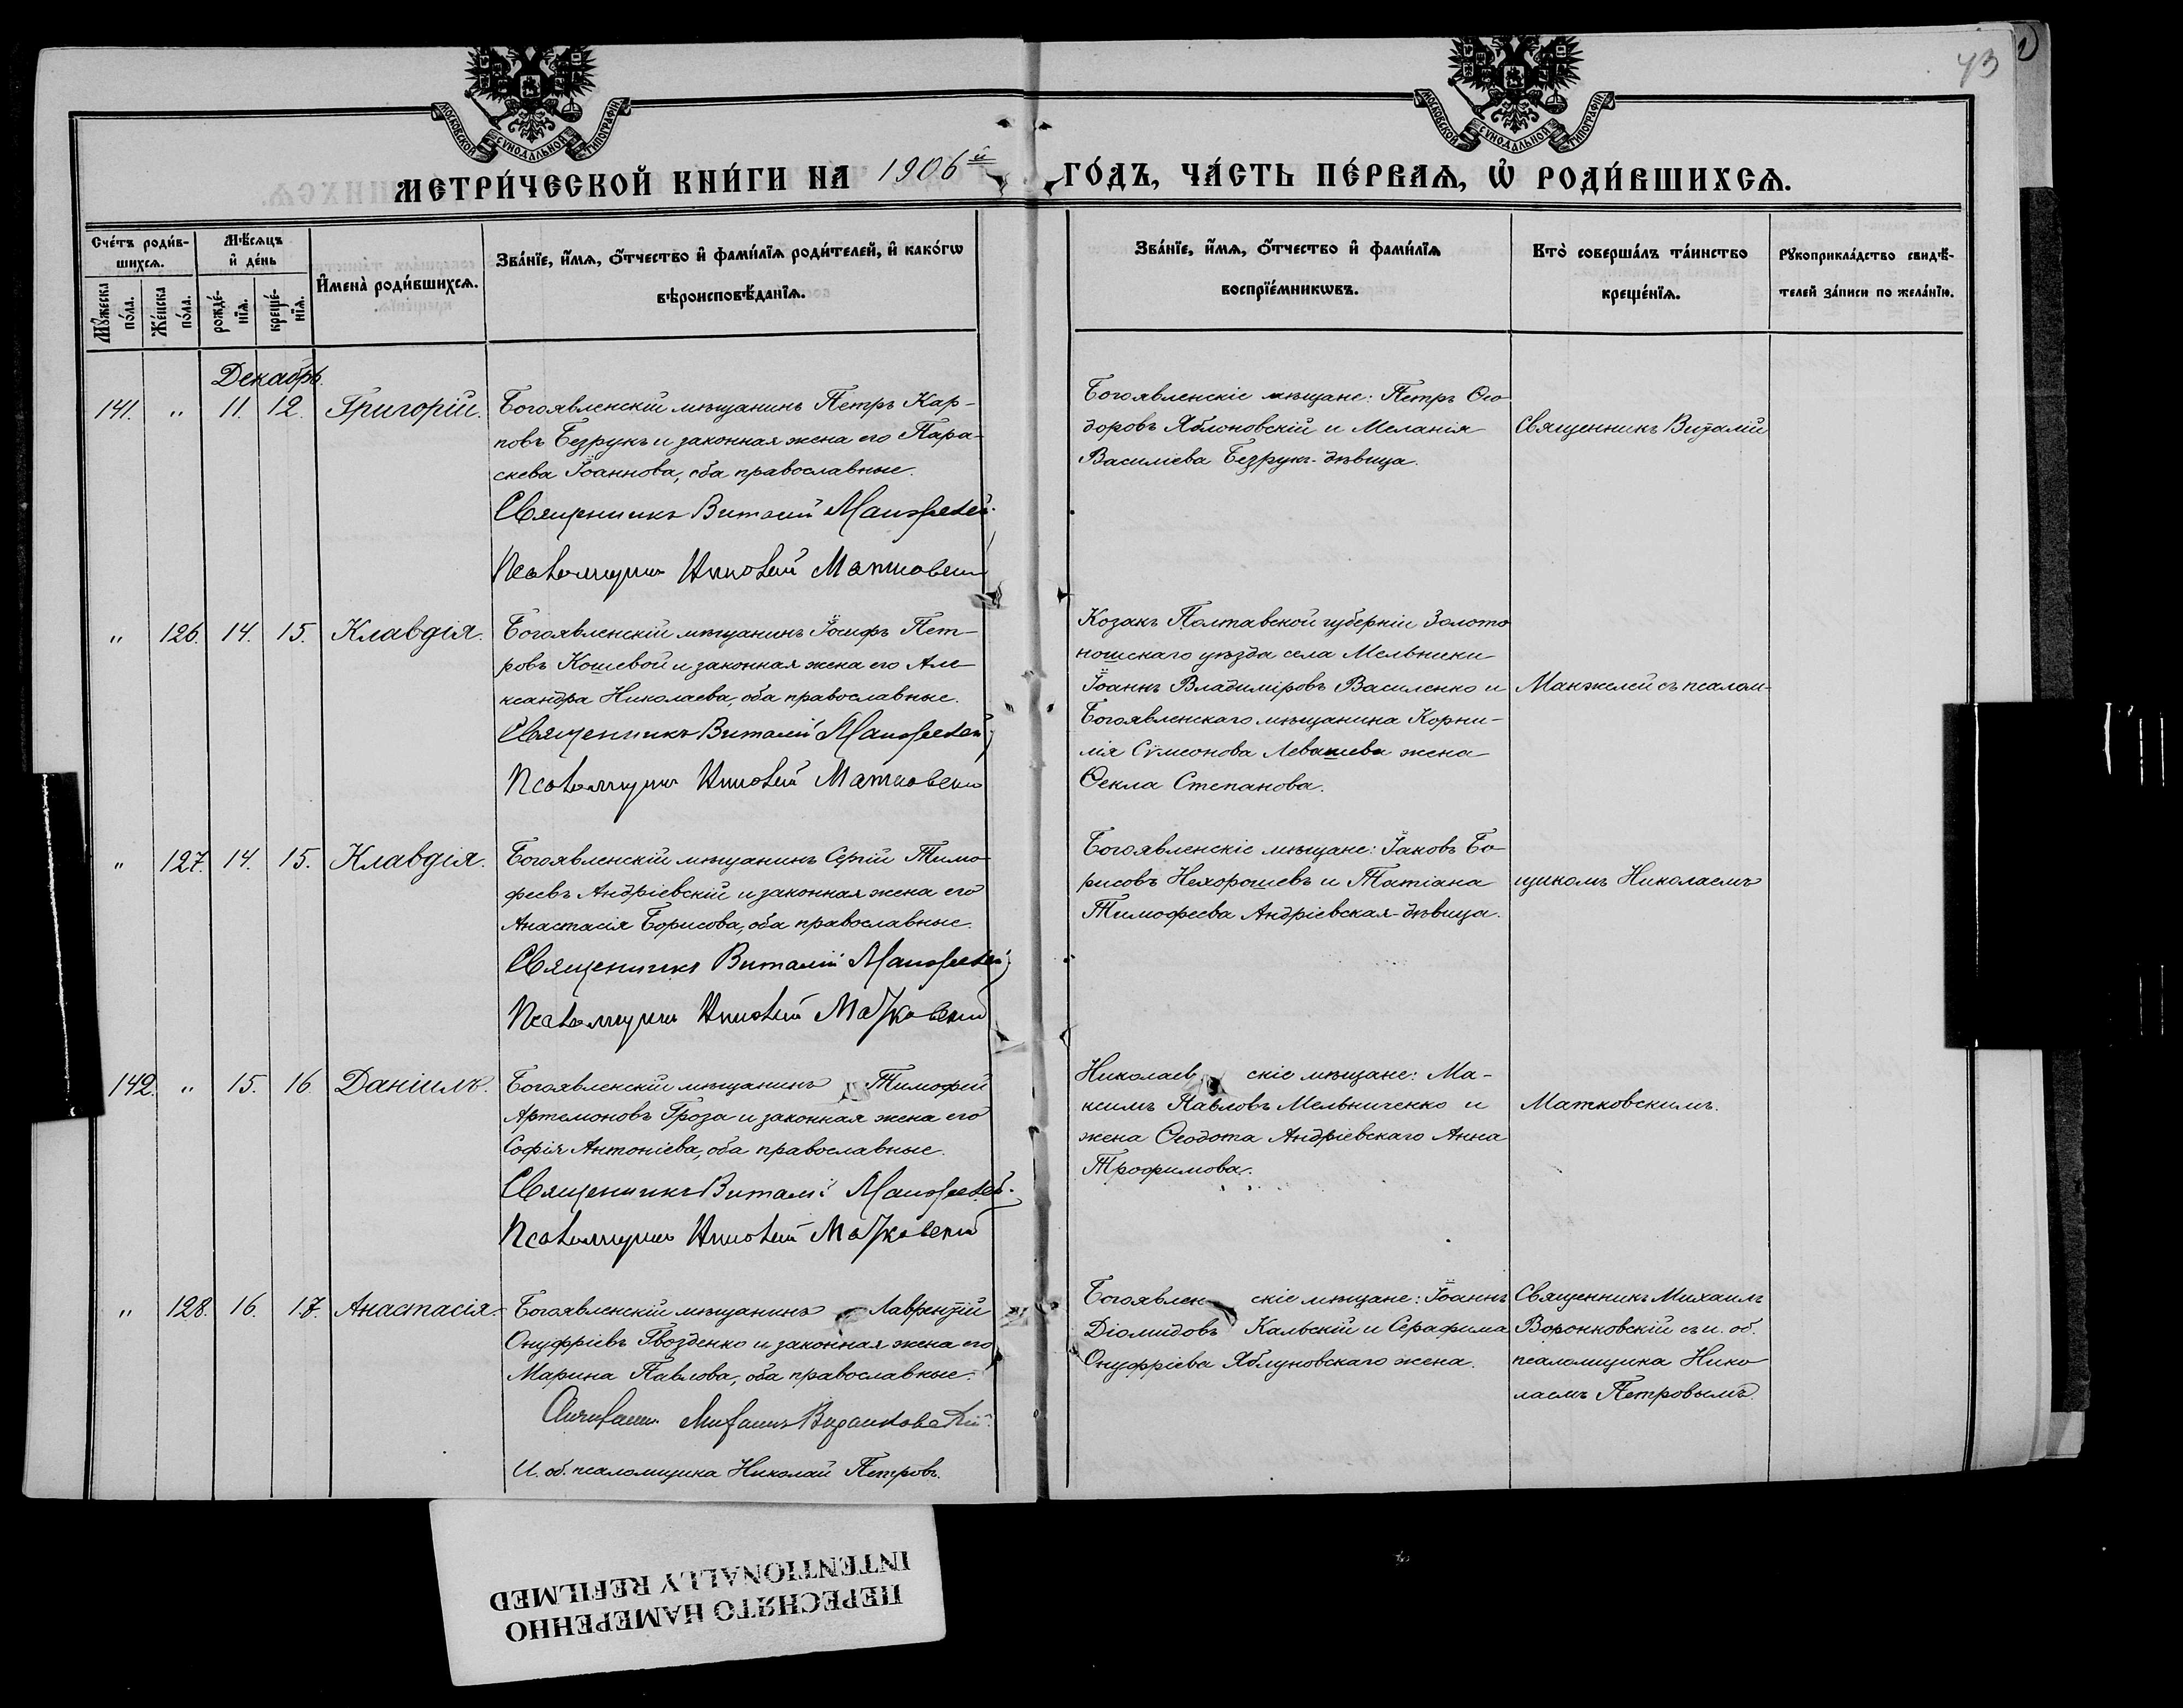 43
МОСКОВСКОЙ СѴНОДАЛЬНОЙ ТИПОГРАФІИ
МОСКОВСКОЙ СѴНОДАЛЬНОЙ ТИПОГРАФІИ
МЕТРИ́ЧЕСКОЙ КНИ́ГИ НА 1906й ГО́ДЪ, ЧА́СТЬ ПЕ́РВАѦ, Ѡ҆ РОДИ́ВШИХСѦ.
Сче́тъ роди́в-
шихсѧ.
Мꙋ́жеска по́ла.
Же́нска по́ла.
Мѣ́сѧцъ
и҆ де́нь
рожде́-
нїѧ.
креще́-
нїѧ.
И҆мена̀ роди́вшихсѧ.
Зва́нїе, и҆́мѧ, ѻ҆́тчество и҆ фами́лїѧ роди́телей, и҆ како́гѡ
вѣроисповѣ́данїѧ.
Зва́нїе, и҆́мѧ, ѻ҆́тчество и҆ фами́лїѧ
воспрїе́мникѡвъ.
Кто̀ соверша́лъ та́инство
креще́нїѧ.
Рꙋкоприкла́дство свидѣ́-
телей за́писи по жела́нїю.
Декабрь.
141. " 11. 12. Григорій.
Богоявленскій мѣщанинъ Петръ Кар-
повъ Безрукъ и законная жена его Пара-
скева Іоаннова, оба православные.
Священникъ Виталій Манжелей.
Псаломщикъ Николай Матковскій
Богоявленскіе мѣщане: Петръ Ѳео
доровъ Яблоновскій и Меланія
Василіева Безрукъ-дѣвица.
Священникъ Виталій
" 126. 14. 15. Клавдія.
Богоявленскій мѣщанинъ Іосифъ Пет-
ровъ Кошевой и законная жена его Але
ксандра Николаева, оба православные.
Священникъ Виталій Манжелей
Псаломщикъ Николай Матковскій
Козакъ Полтавской губерніи Золото
ношскаго уѣзда села Мельники
Іоаннъ Владиміровъ Василенко и
Богоявленскаго мѣщанина Корни-
лія Сѵмеонова Левашева жена
Ѳекла Степанова.
Манжелей съ псалом-
" 127. 14. 15. Клавдія.
Богоявленскій мѣщанинъ Сергій Тимо
феевъ Андріевскій и законная жена его
Анастасія Борисова, оба православные.
Священникъ Виталій Манжелей
Псаломщикъ Николай Матковскій
Богоявленскіе мѣщане: Іаковъ Бо-
рисовъ Нехорошевъ и Татіана
Тимофеева Андріевская-дѣвица.
щикомъ Николаемъ
142. " 15. 16. Даніилъ.
Богоявленскій мѣщанинъ Тимофей
Артемоновъ Гроза и законная жена его
Софія Антоніева, оба православные.
Священникъ Виталій Манжелей.
Псаломщикъ Николай Матковскій
Николаевскіе мѣщане: Ма-
ксимъ Павловъ Мельниченко и
жена Ѳеодота Андріевскаго Анна
Трофимова.
Матковскимъ.
" 128. 16. 17. Анастасія.
Богоявленскій мѣщанинъ Лаврентій
Онуфріевъ Гвозденко и законная жена его
Марина Павлова, оба православные.
Михаилъ Воронковскій.
И. об. псаломщика Николай Петровъ.
Богоявленскіе мѣщане: Іоаннъ
Діомидовъ Кальскій и Серафима
Онуфріева Яблуновскаго жена.
Священникъ Михаилъ
Воронковскій съ и. об.
псаломщика Нико
лаемъ Петровымъ.
ПЕРЕСНЯТО НАМЕРЕННО
INTENTIONALLY REFILMED